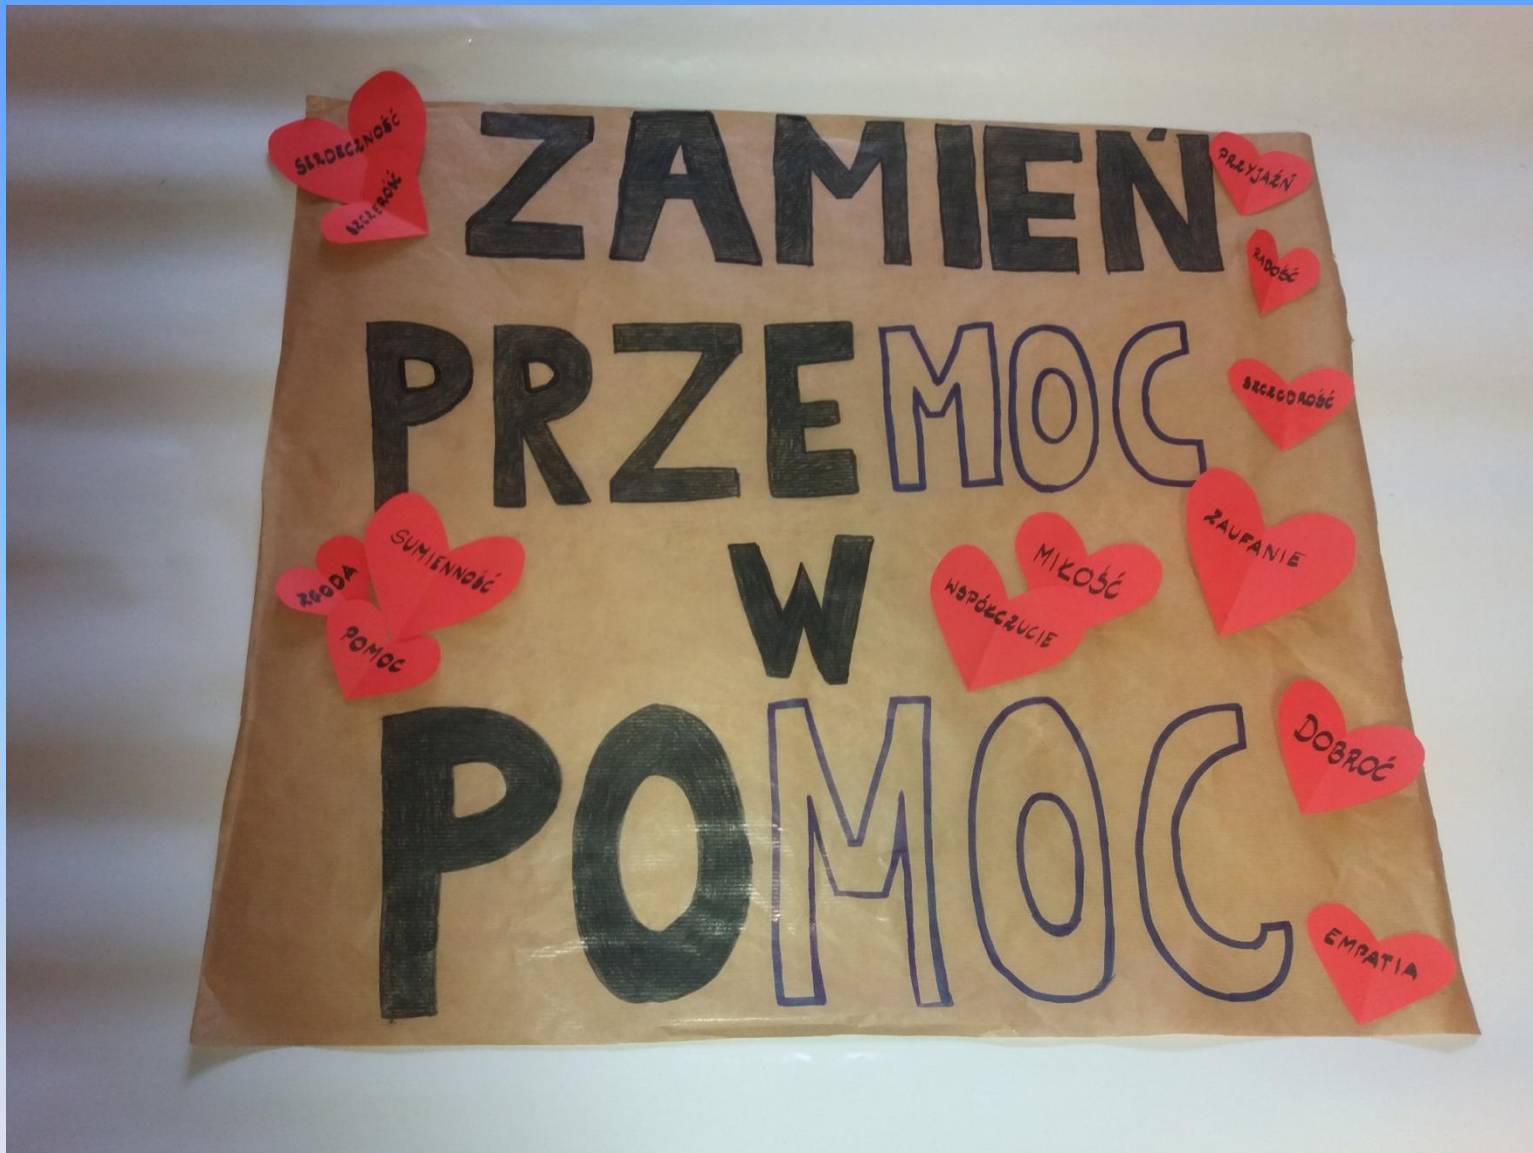 SERDECZNOŚĆ
SZCZEROŚĆ
ZAMIEŃ
PRZYJAŹŃ
RADOŚĆ
PRZEMOC
SZCZODROŚĆ
ZGODA
SUMIENNOŚĆ
POMOC
W
WSPÓŁCZUCIE
MIŁOŚĆ
ZAUFANIE
POMOC
DOBROĆ
EMPATIA